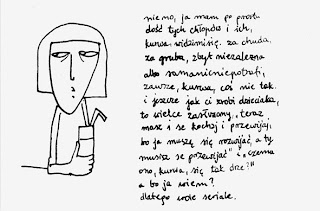 nie no, ja mam po prostu
dość tych chłopów i ich,
kurwa widzimisię. za chuda,
za gruba, zbyt niezależna
albo samanicniepotrafi,
zawsze, kurwa, coś nie tak.
i jeszcze jak ci zrobi dzieciaka,
to wielce zasłużony, „teraz
masz i se kochaj i przewijaj,
bo ja muszę się rozwijać, a ty
musisz se przewijać" i „czemu
ono, kurwa, się tak drze?"
a bo ja wiem?
dlatego wolę seriale.